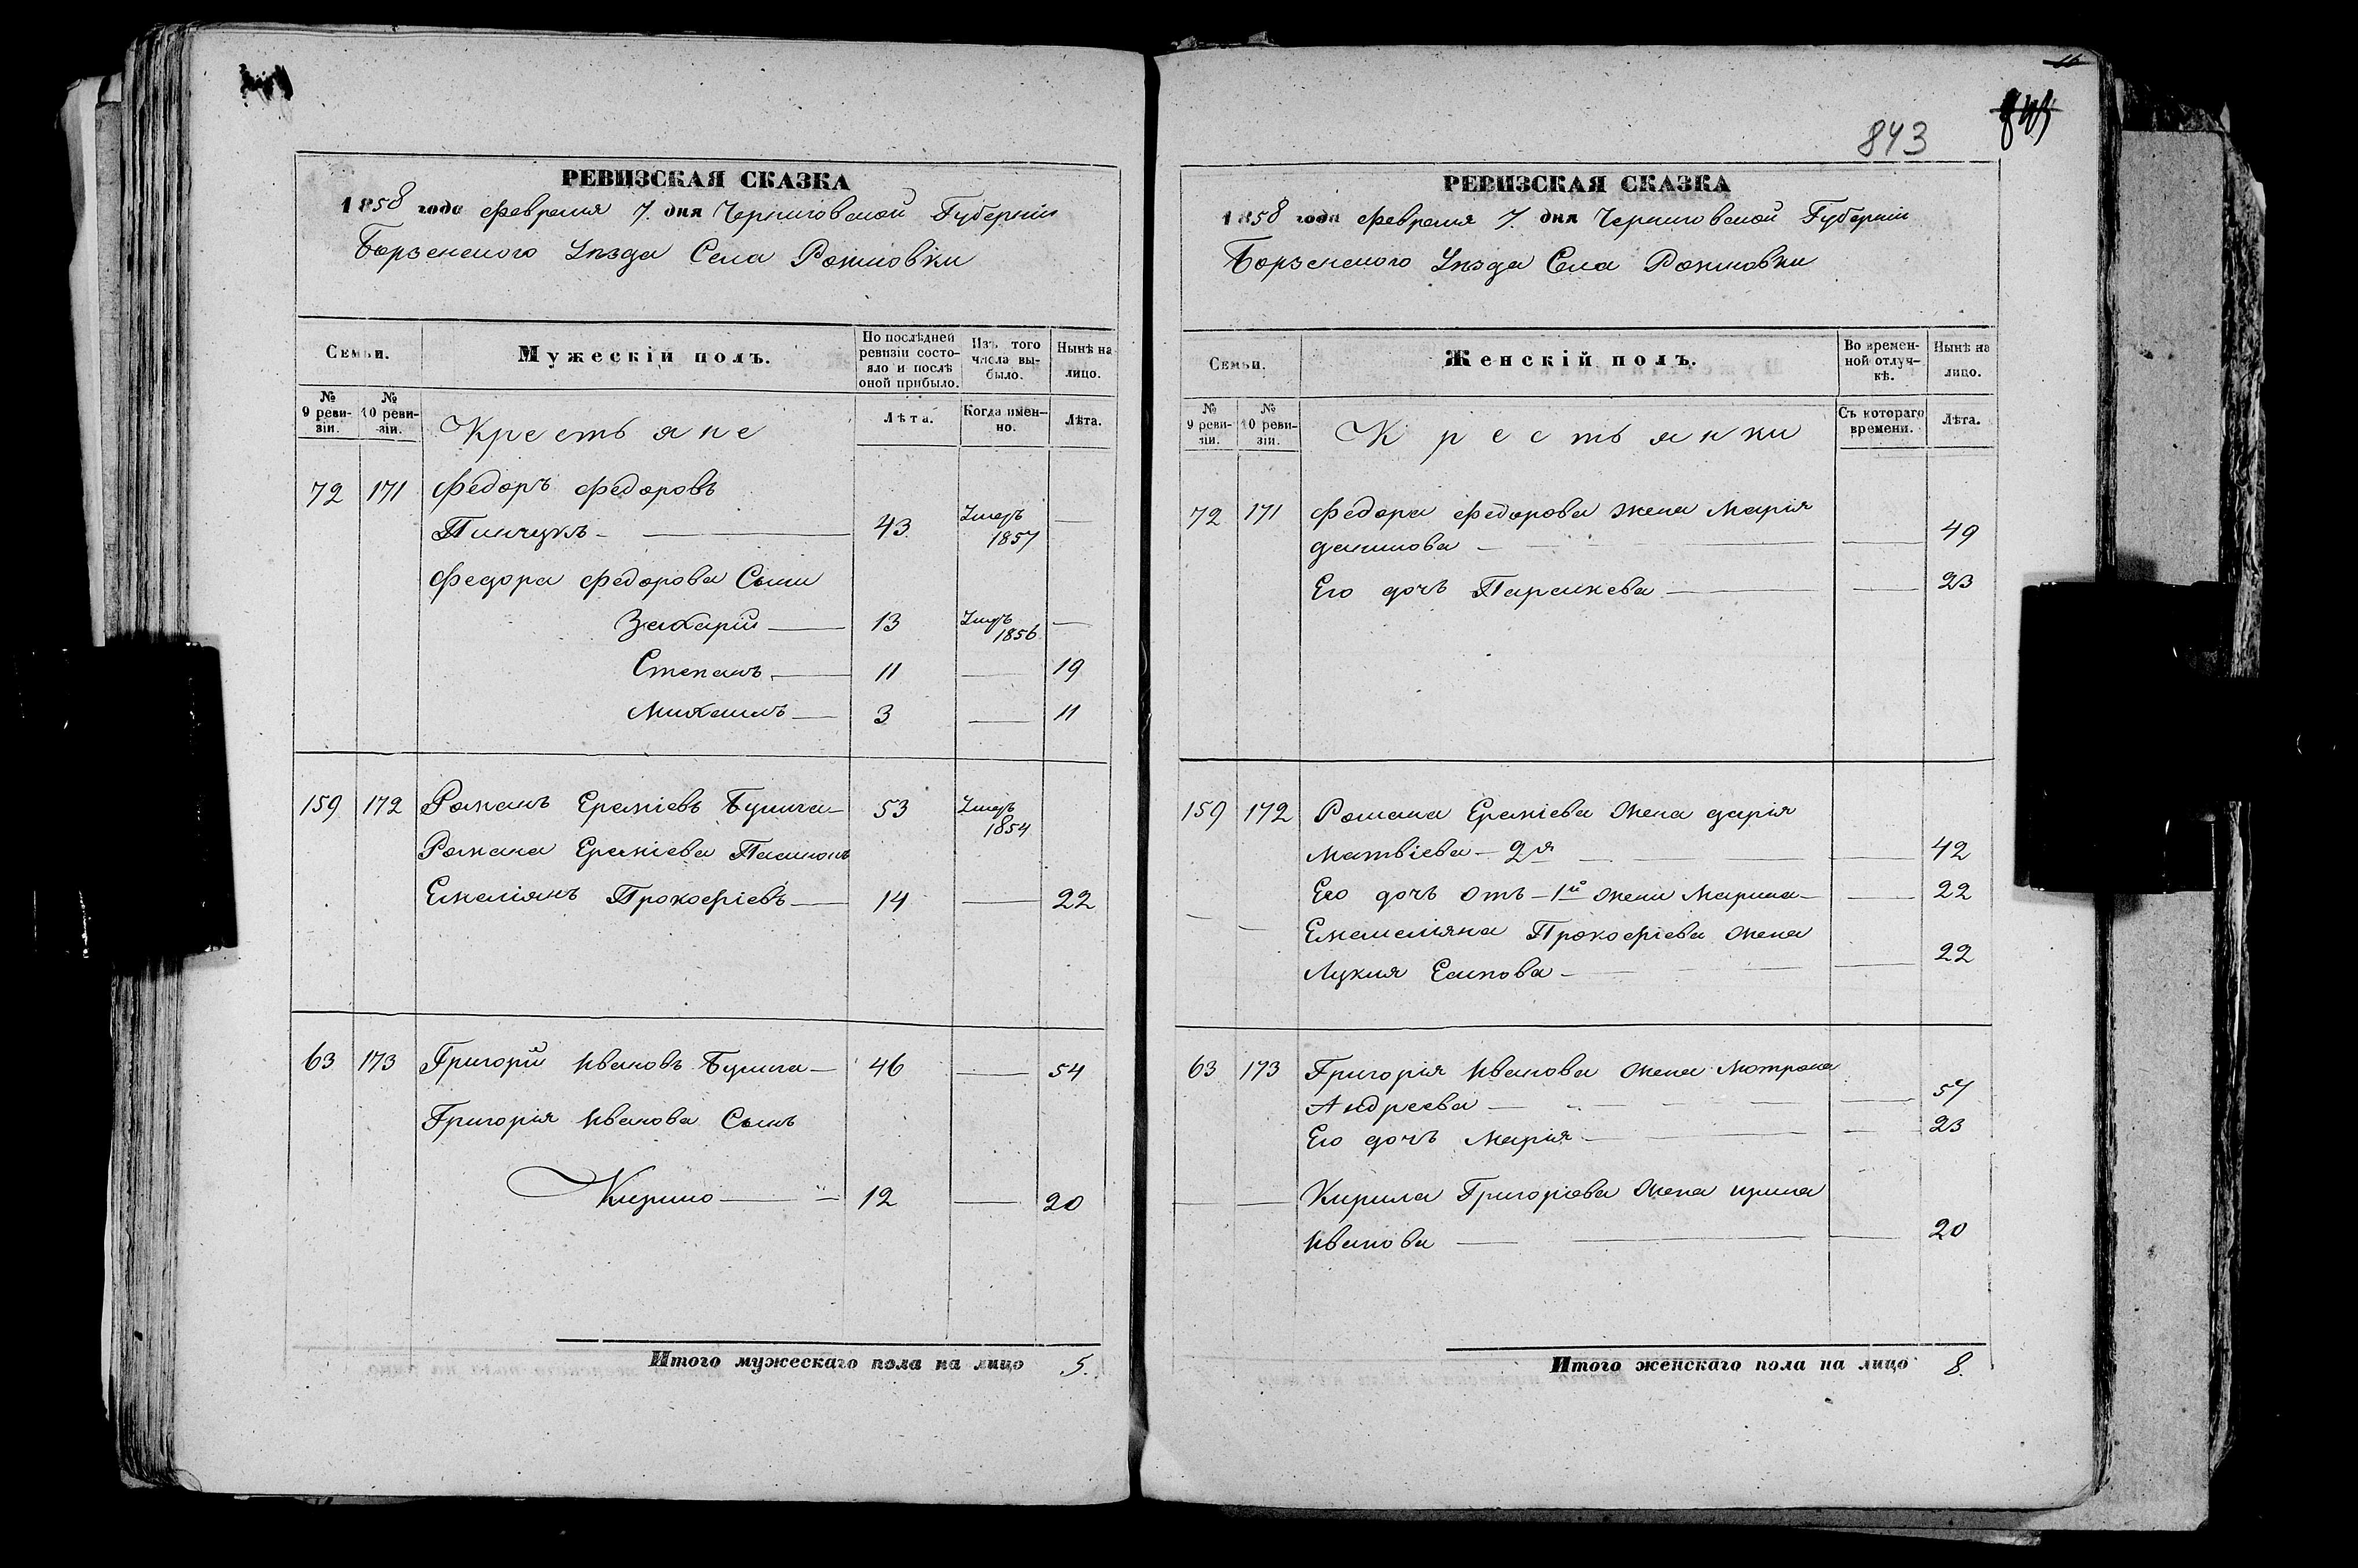 843
РЕВИЗСКАЯ СКАЗКА
1858 года февраля 7. дня Черниговской Губерніи
Борзенского Уѣзда Села Рожновки
Семьи.
Мужескій полъ.
По послѣдней ревизіи состояло и послѣ оной прибыло.
Изъ того числа выбыло.
Нынѣ на лицо.
№ 9 ревизіи.
№ 10 ревизіи.
Крестьяне
Лѣта.
Когда именно.
Лѣта.
72 171 Федоръ Федоровъ
Пинчукъ — 43 Умеръ 1857 —
Федора Федорова Сыны
Захарій — 13 Умеръ 1856 —
Степанъ — 11 — 19
Михаилъ — 3 — 11
159 172 Романъ Ереміевъ — 53 Умеръ 1854
Романа Ереміева
Емеліянъ Прокофіевъ — 14 — 22
63 173 Григорій Ивановъ — 46 — 54
Григорія Иванова Сынъ
Кирило — 12 — 20
Итого мужескаго пола на лицо 5.
РЕВИЗСКАЯ СКАЗКА
1858 года февраля 7. дня Черниговской Губерніи
Борзенского Уѣзда Села Рожновки
Семьи.
Женскій полъ.
Во временной отлучкѣ.
Нынѣ на лицо.
№ 9 ревизіи.
№ 10 ревизіи.
Крестьянки
Съ котораго времени.
Лѣта.
72 171 Федора Федорова жена Марія
данилова — — 49
Его дочь Параскева — — 23
159 172 Романа Ереміева жена дарія
Матвіева — 2я — — 42
Его дочь отъ — 1й жены Марина — — 22
Емелеліяна Прокофіева жена
Лукия Есипова — — 22
63 173 Григорія Иванова жена Мотрона
Андреева — — 57
Его дочь Марія — — 23
— — Кирила Григоріева жена ирина
Иванова — — 20
Итого женскаго пола на лицо 8.